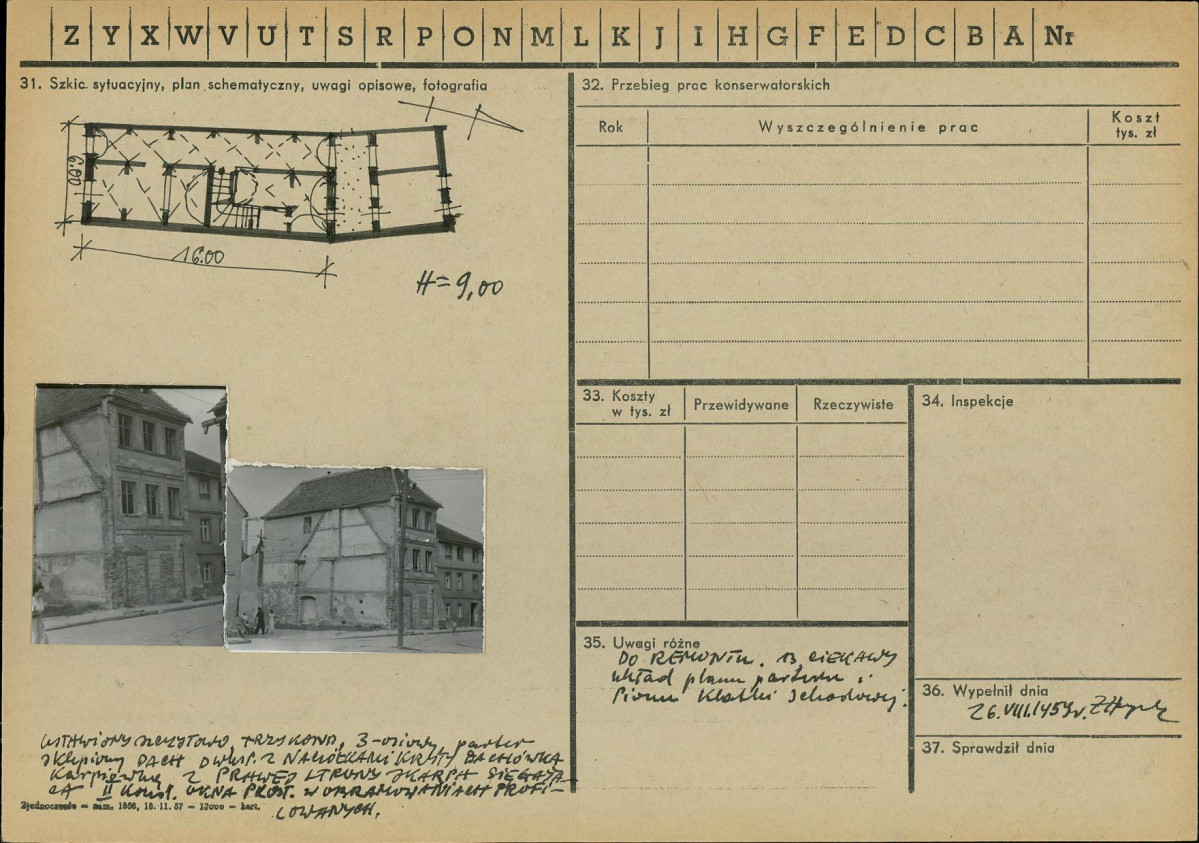 Z Y X W V U T S R P O N M L K J I H G F E D C B A Nr
31. Szkic sytuacyjny, plan schematyczny, uwagi opisowe, fotografia
6.00
16.00
H=9,00
USTAWIONY SZCZYTOWO, TRZYKOND, 3-osiowy, parter
sklepiony DACH DWUSP. Z NACZÓŁKAMI KRYTY DACHÓWKĄ
Karpiówką, Z PRAWEJ STRONY SKARPA SIĘGAJĄ-
CA II Kond. OKNA PROST. W OBRAMOWANIACH PROFI-
LOWANYCH.
Zjednoczenie — zam. 1856, 18. 11. 57 — 12000 — kart.
32. Przebieg prac konserwatorskich
Rok
Wyszczególnienie prac
Koszt
tys. zł
33. Koszty
w tys. zł
Przewidywane
Rzeczywiste
34. Inspekcje
35. Uwagi różne
DO REMONTU. B. CIEKAWY
układ planu parteru i
Pionu Klatki Schodowej.
36. Wypełnił dnia
26.VIII.1959r.
37. Sprawdził dnia